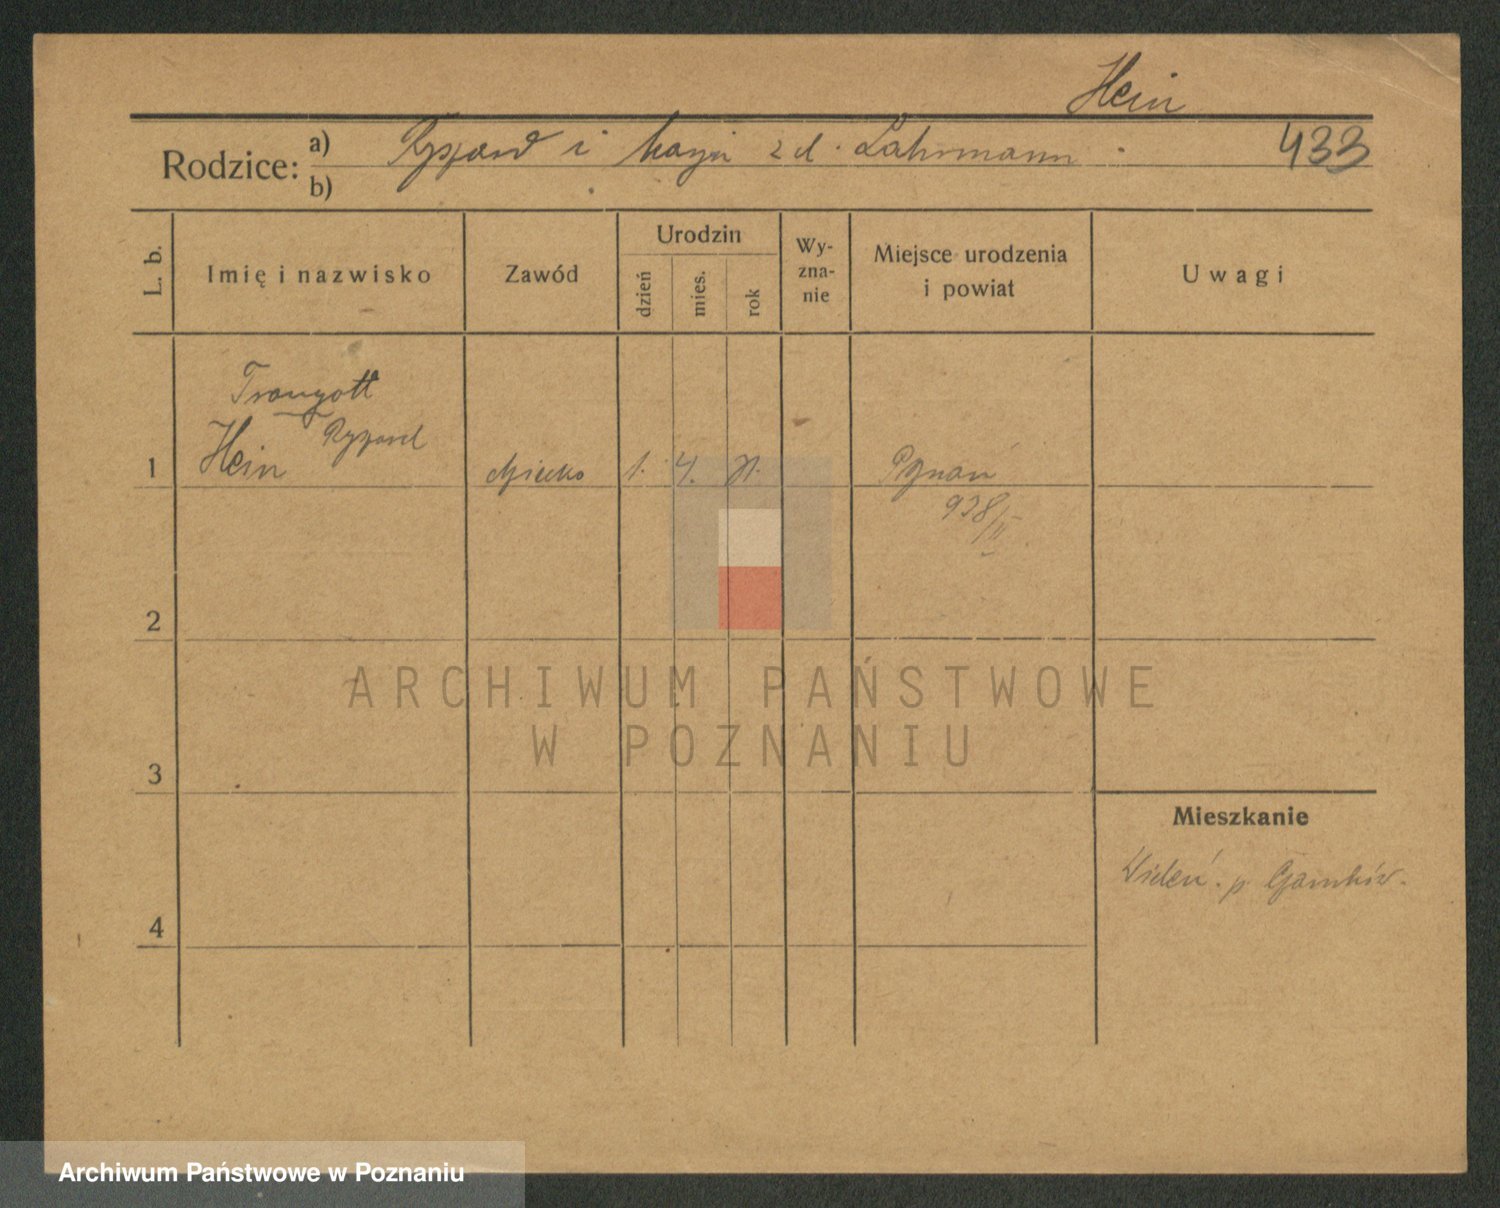 Hein
Rodzice: a) Ryszard i Marja z d. Lahrmann 433
b)
L. b. Imię i nazwisko Zawód Urodzin dzień mies. rok Wyznanie Miejsce urodzenia i powiat Uwagi
Traugott
Ryszard
1 Hein dziecko 1. 4. Poznań
928/II
2
ARCHIWUM PAŃSTWOWE
W POZNANIU
3
Mieszkanie
Wieleń p. Czarnków.
4
Archiwum Państwowe w Poznaniu